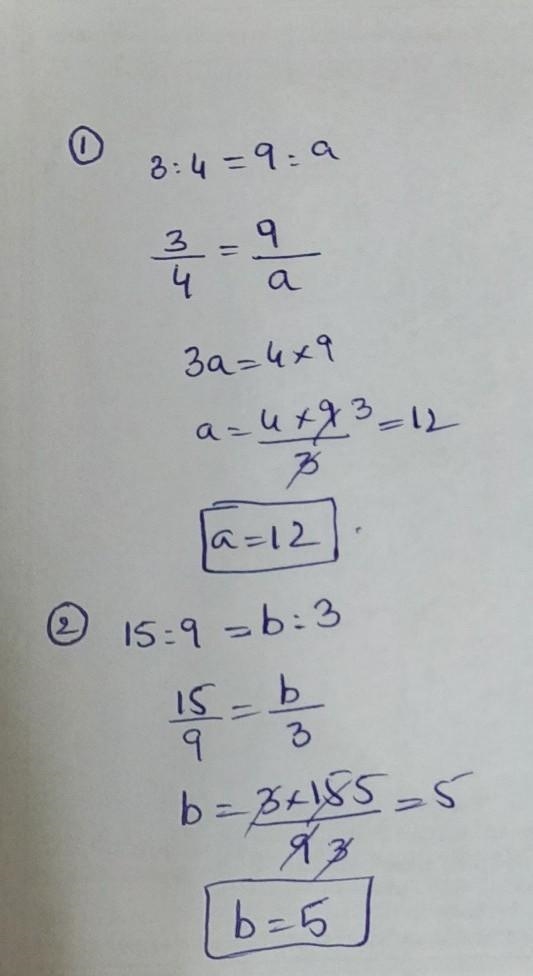 ① 3:4 = 9:a
3/4 = 9/a
3a = 4×9
a = 4×9 3/3 = 12
a = 12
② 15:9 = b:3
15/9 = b/3
b = 3×15 5/9 3 = 5
b = 5